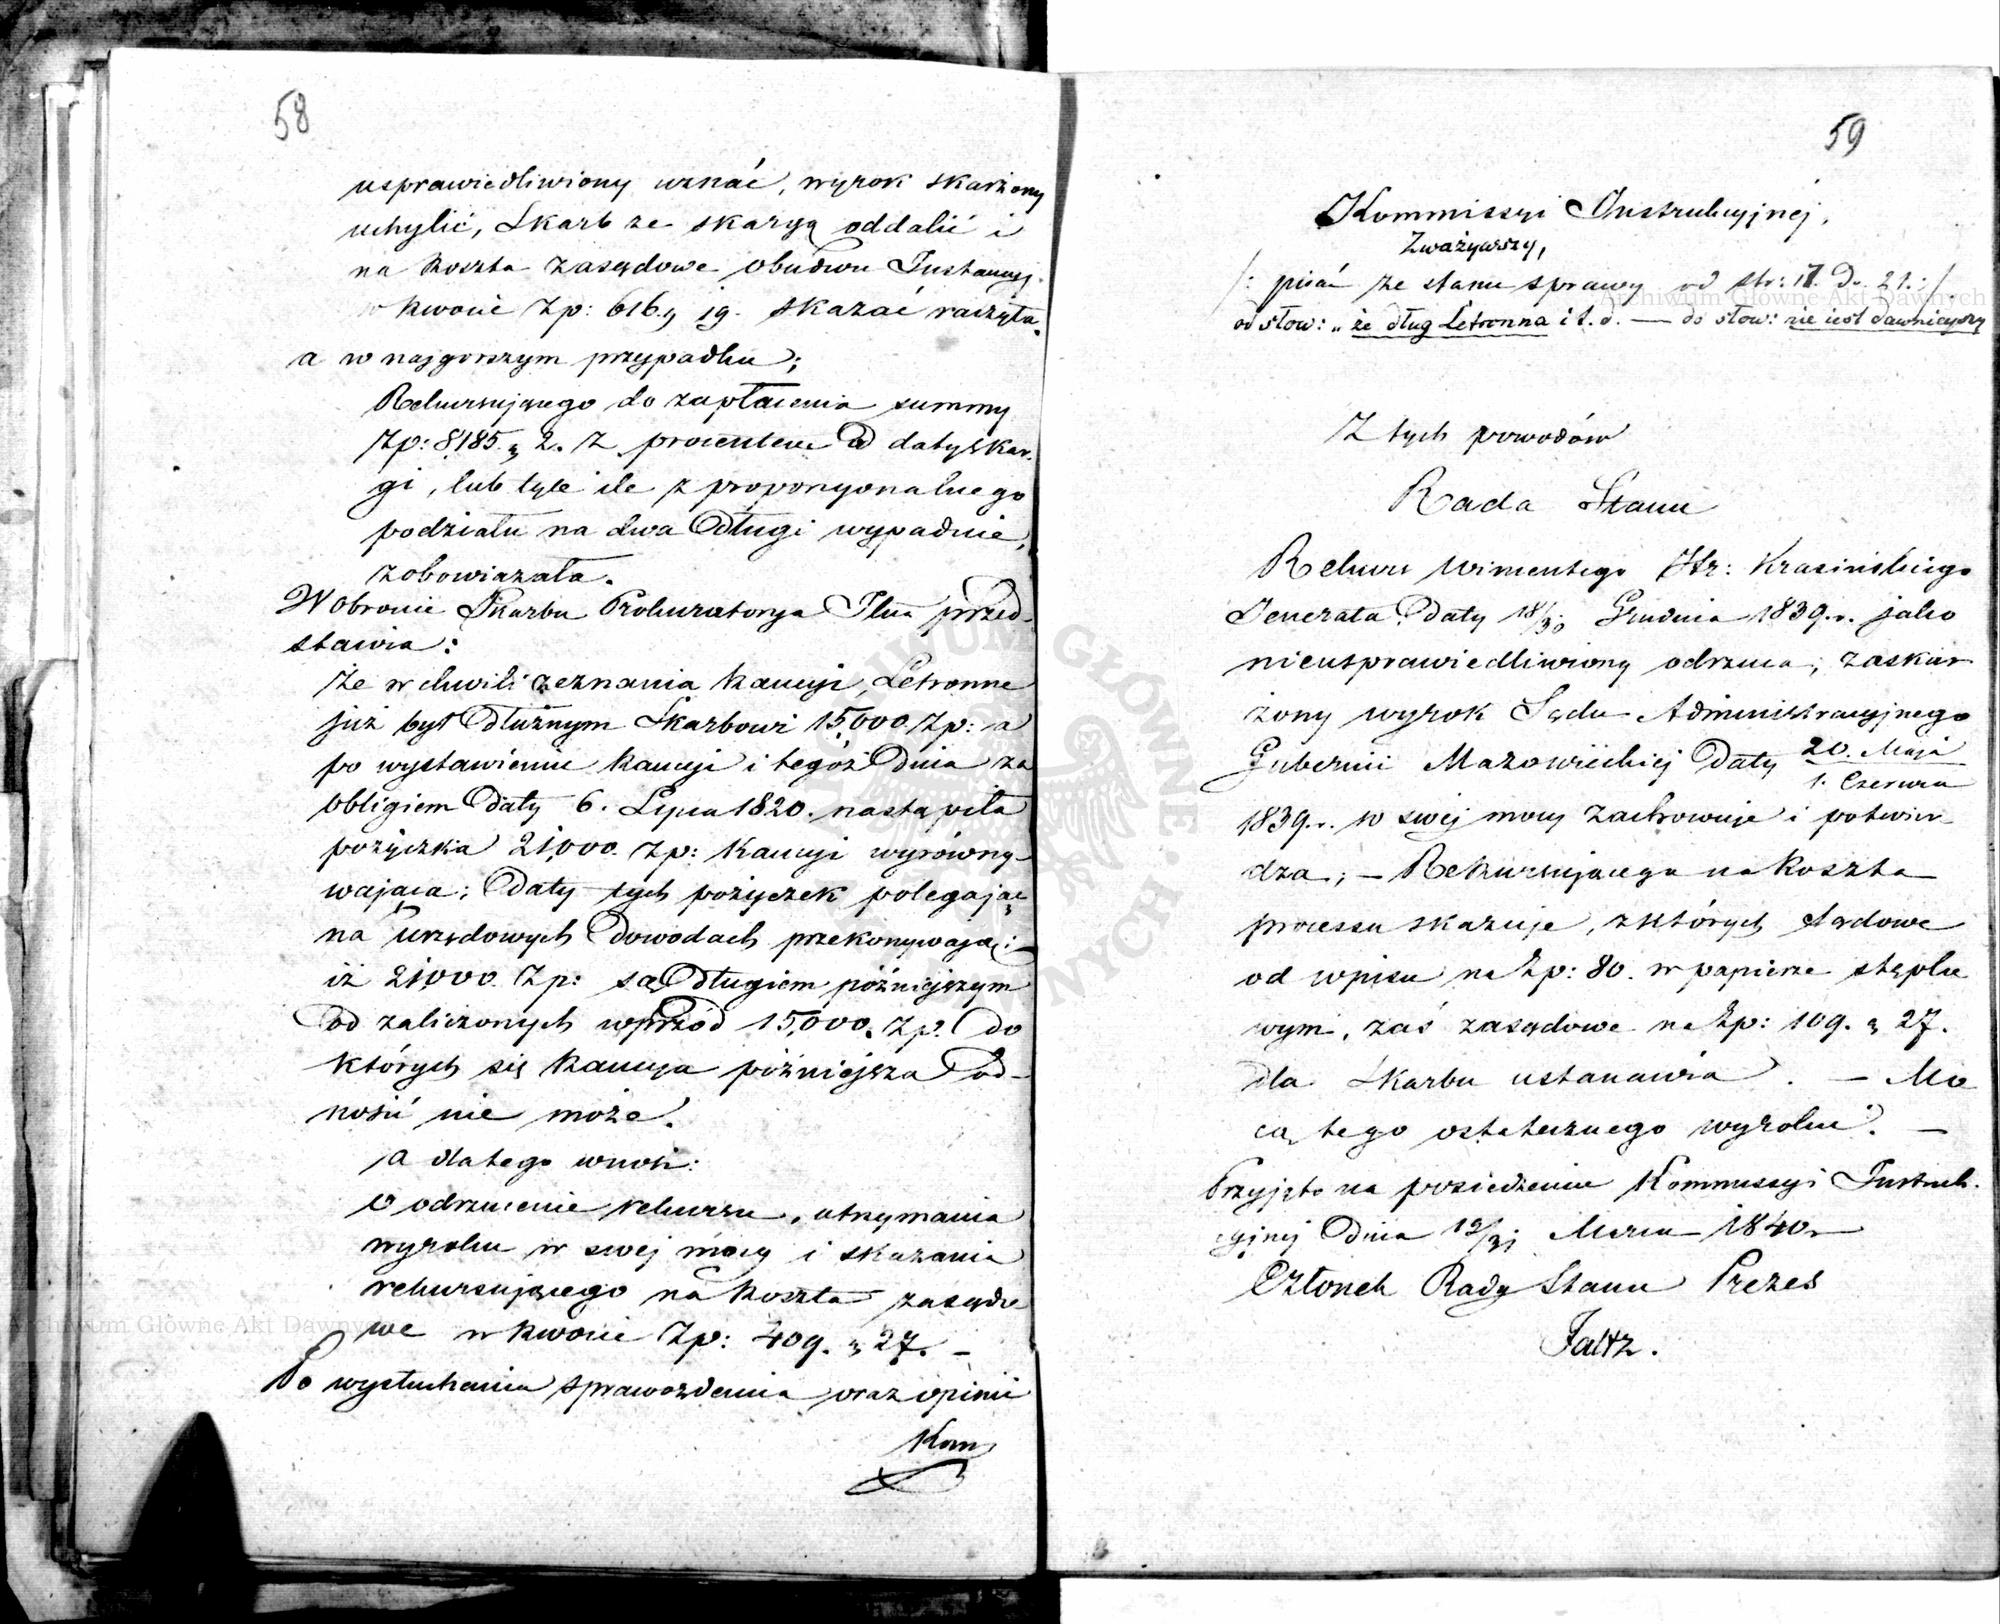 58
usprawiedliwiony uznać, wyrok skarżony
uchylić, Skarb ze skargą oddalić i
na koszta zasądowe obudwu Instancyj
w kwocie Zp: 616. 19. skazać raczyła.
a w najgorszym przypadku;
Rekursującego do zapłacenia summy
Zp: 8185. 2. z procentem od daty skar-
gi, lub tyle ile z proporcyonalnego
podziału na dwa Długi wypadnie,
zobowiązała.
W obronie Skarbu Prokuratorya Jlna przed-
stawia:
że w chwili zeznania kaucyi, Letronne
już był Dłużnym Skarbowi 15,000 Zp: a
po wystawieniu kaucyi i tegoż Dnia za
obligiem Daty 6. Lipca 1820. nastąpiła
pożyczka 21,000. Zp: kaucyi wyrówny-
wająca; Daty tych pożyczek polegając
na urzędowych Dowodach przekonywają:
iż 21,000. Zp: są Długiem późniejszym
od zaliczonych wprzód 15,000. Zp. do
których się kaucya późniejsza od-
nosić nie może.
a dlatego wnosi:
o odrzucenie rekursu, utrzymania
wyroku w swej mocy i skazania
rekursującego na koszta zasądo
we w kwocie Zp: 409. 27. –
Po wysłuchaniu sprawozdania oraz opinii
Kom
59
Kommissyi Instrukcyjnej,
Zważywszy,
/: pisać ze stanu sprawy od str: 17. do 21. :/
od słow: „ że dług Letronna i t. d. — do słow: nie iest dawnieyszy
Z tych powodów
Rada Stanu
Rekurs Wincentego Hr: Krasińskiego
Jenerała Daty 18/30 Grudnia 1839. r. jako
nieusprawiedliwiony odrzuca; zaskar
żony wyrok Sądu Administracyjnego
Gubernii Mazowieckiej Daty 20. Maja
1. Czerwca
1839. r. w swej mocy zachowuje i potwier
dza; – Rekursującego na koszta
processu skazuje, z których sądowe
od wpisu na Zp: 80. w papierze stęplo
wym, zaś zasądowe na Zp: 109. 27.
dla Skarbu ustanawia. – Mo
cą tego ostatecznego wyroku. –
Przyjęto na posiedzeniu Kommissyi Instruk-
cyjnej Dnia 19/31 Marca 1840 r
Członek Rady Stanu Prezes
Faltz.